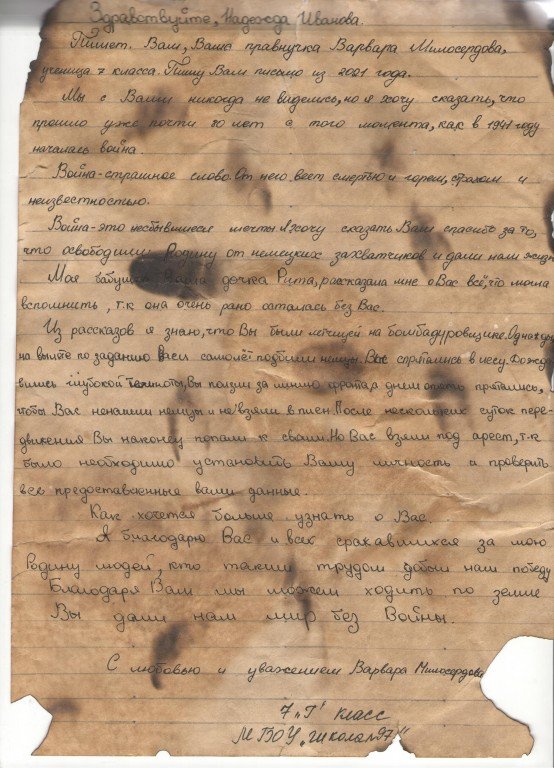 Здравствуйте, Надежда Иванова.
Пишет Вам, Ваша правнучка Варвара Милосердова,
ученица 7 класса. Пишу Вам письмо из 2021 года.
Мы с Вами никогда не виделись, но я хочу сказать, что
прошло уже почти 80 лет с того момента, как в 1941 году
началась война.
Война-страшное слово. От него веет смертью и горем, страхом и
неизвестностью.
Война-это несбывшиеся мечты. Я хочу сказать Вам спасибо за то,
что освободили Родину от немецких захватчиков и дали нам жизнь
Моя бабушка, Ваша дочка Рита, рассказала мне о Вас всё, что могла
вспомнить, т.к она очень рано осталась без Вас.
Из рассказов я знаю, что Вы были лётчицей на бомбадуровщике.
на вылете по заданию Ваш самолёт подбили немцы. Вы спрятались в лесу.
глубокой темноты, Вы ползли за линию фронта, а днем опять прятались,
чтобы Вас ненашли немцы и не взяли в плен. После нескольких суток пере-
движения Вы наконец попали к своим. Но Вас взяли под арест, т-к
было необходимо установить Вашу личность и проверить
все предоставленные вами данные.
Как хочется больше узнать о Вас.
Я благодарю Вас и всех сражавшихся за мою
Родину людей, кто таким трудом добыл нам победу
Благодаря Вам мы можем ходить по земле
Вы дали нам мир без Войны.
С любовью и уважением Варвара Милосердова
7 „Г" класс
МБОУ „Школа №97"